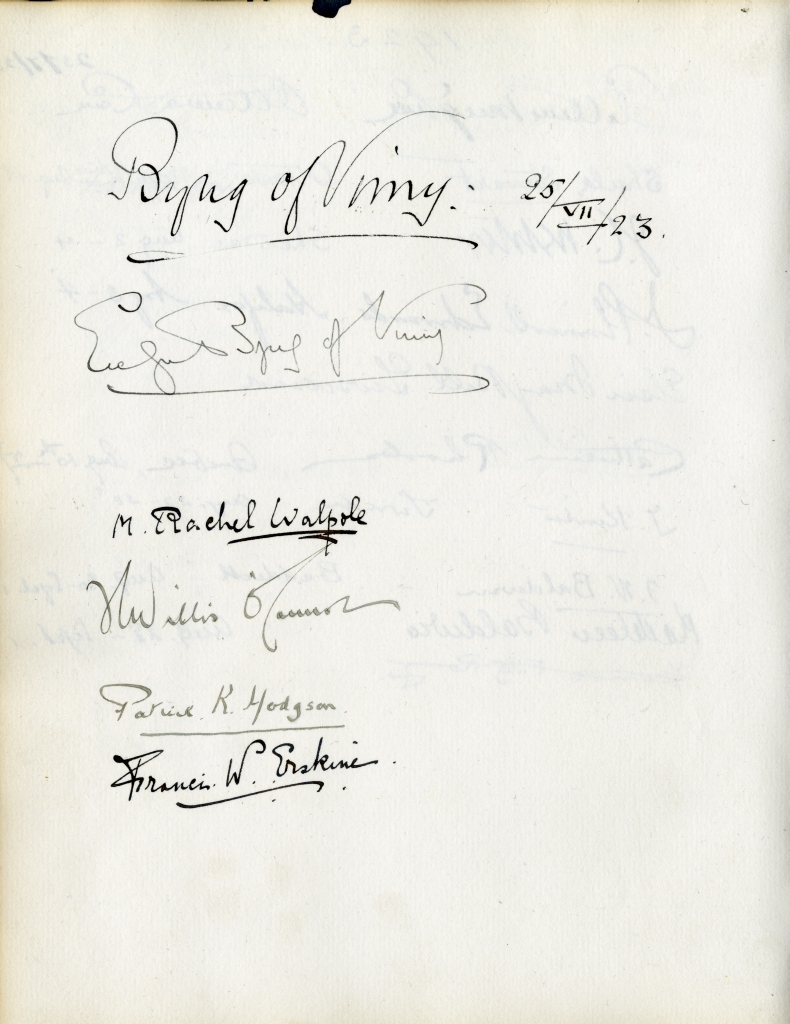 Byng of Vimy. 25/VII/23.
Evelyn Byng of Vimy
M. Rachel Walpole
H Willis O'Connor
Patrick K. Hodgson
Francis W. Erskine.